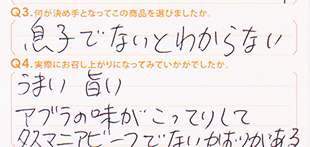 Q3.何が決め手となってこの商品を選びましたか。
息子でないとわからない
Q4.実際にお召し上がりになってみていかがでしたか。
うまい 旨い
アブラの味がこってりして
タスマニアビーフでないかおりがある